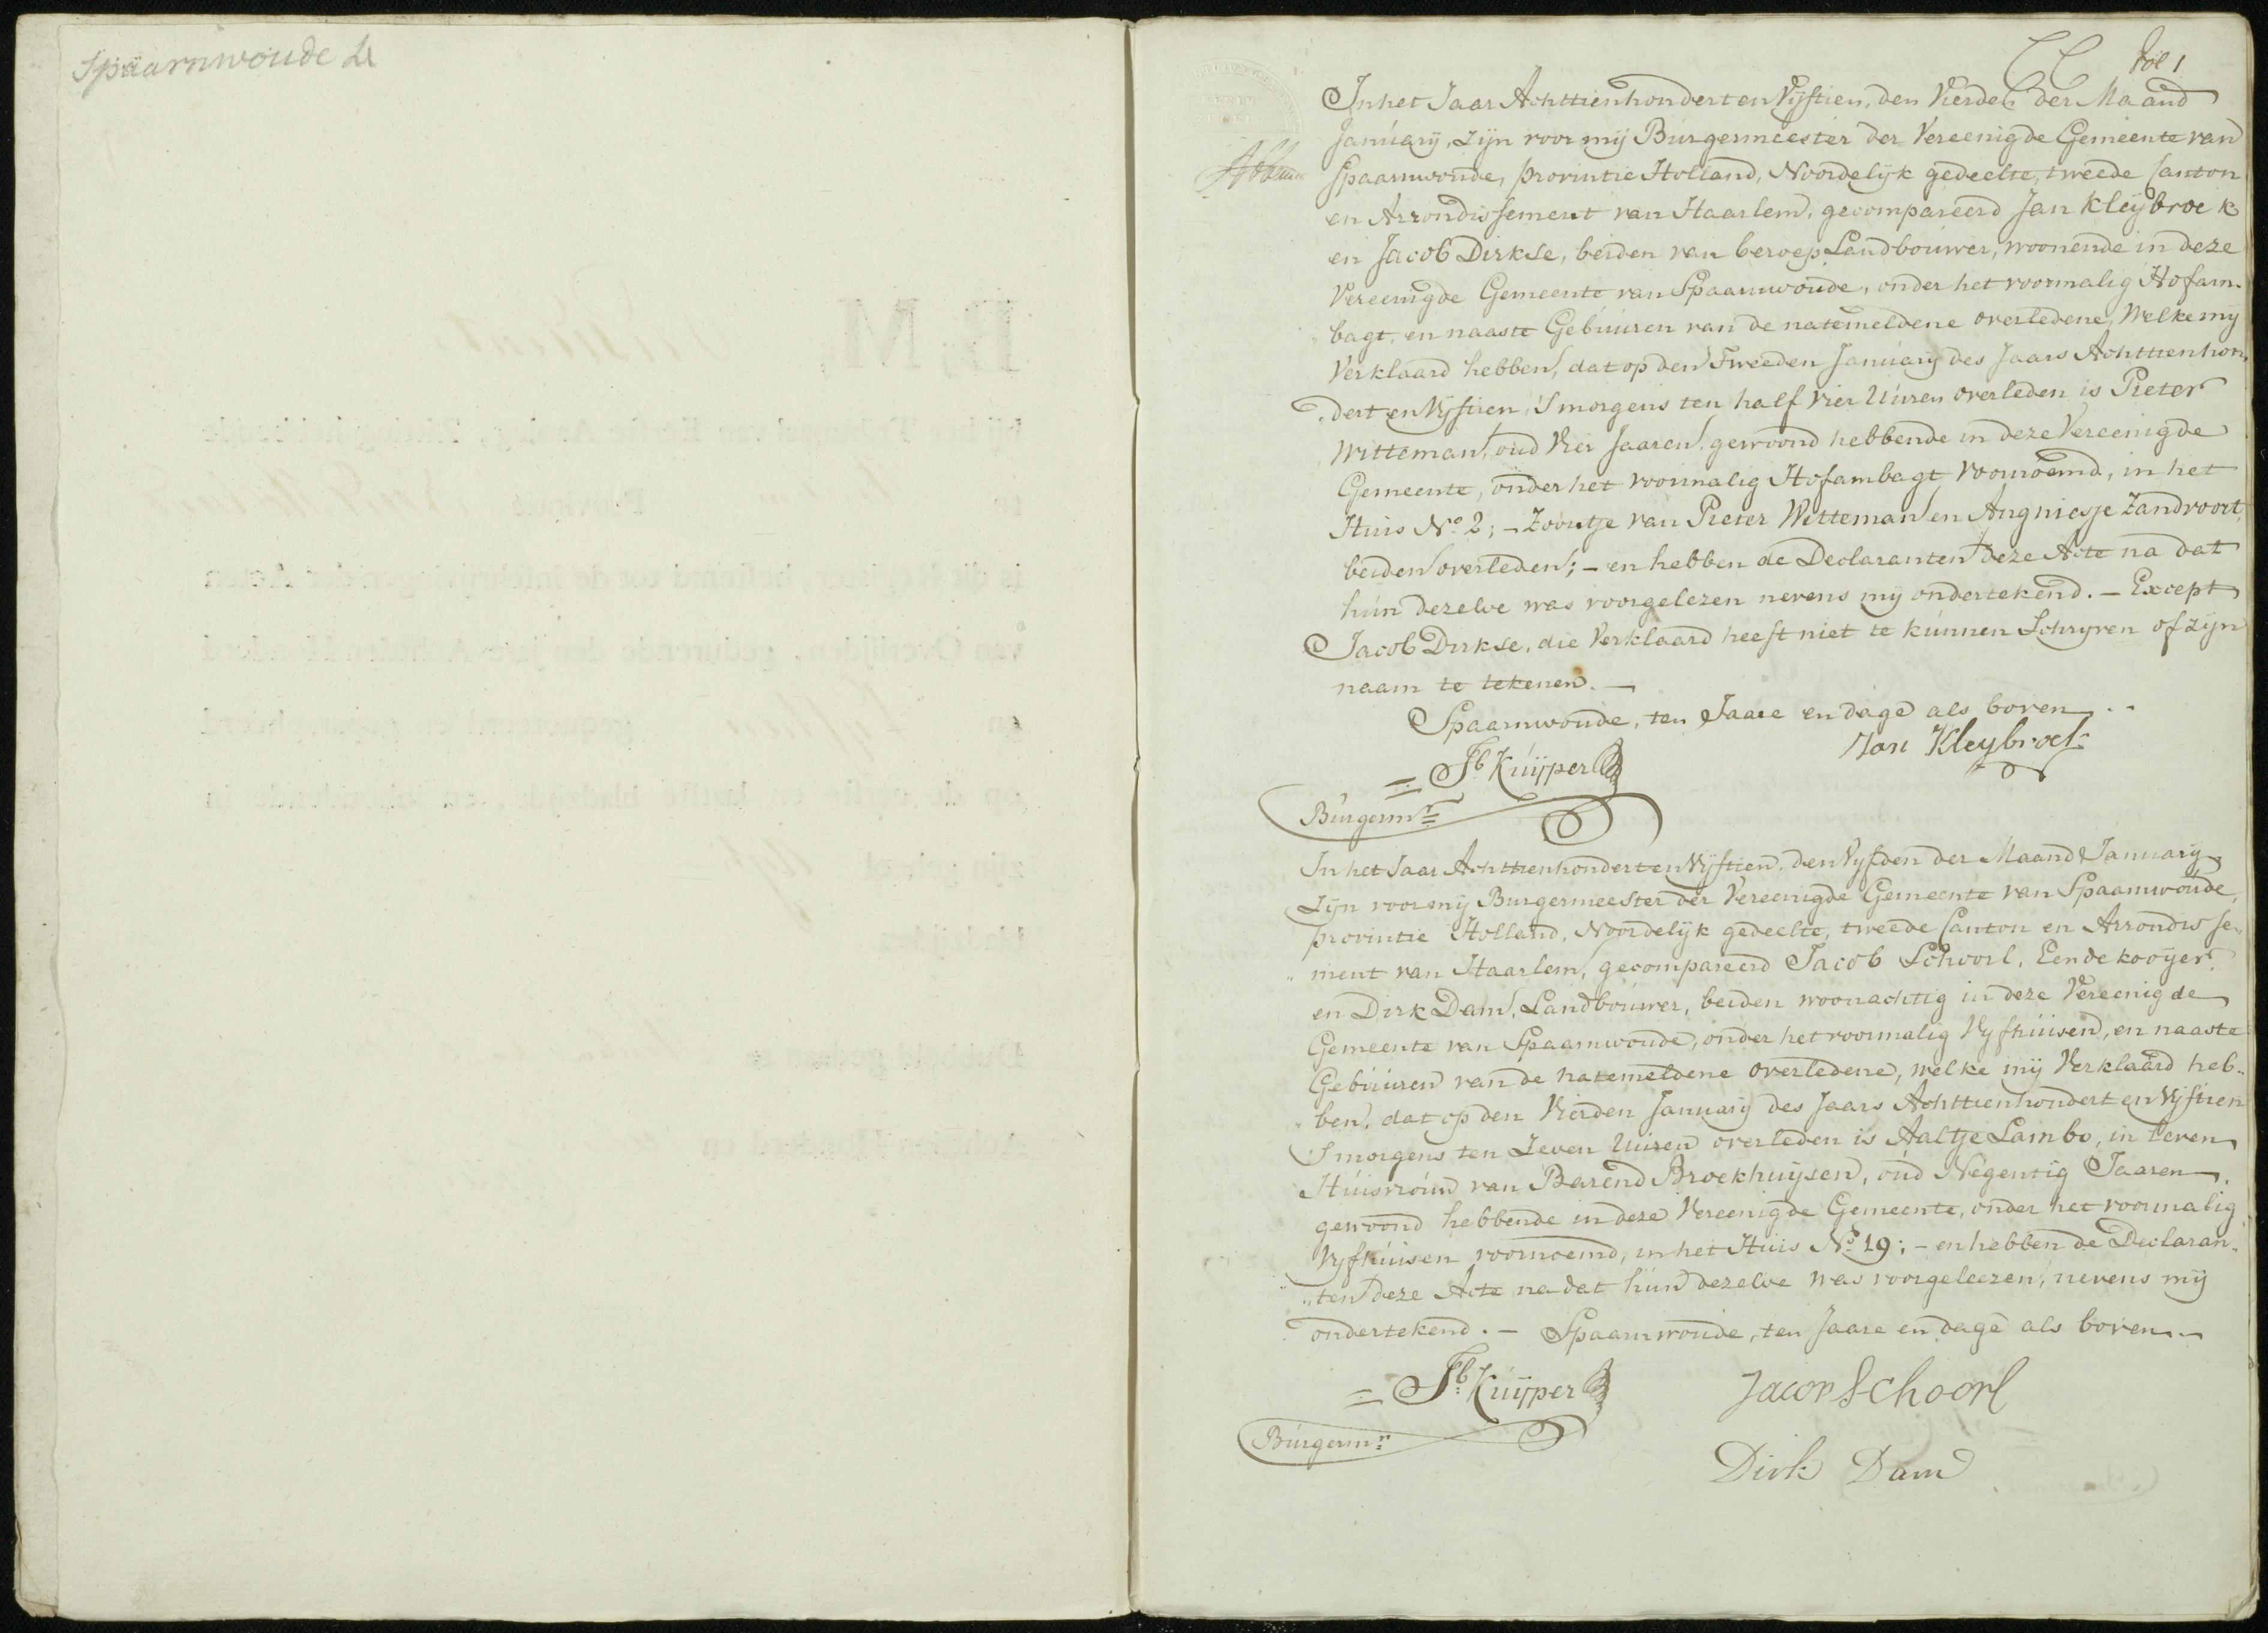 Spaarnwoude
fol 1
In het Jaar Achttienhondert en Vÿftien, den Vierden der Maand
Januarij, zijn voor mij Burgermeester der Vereenigde Gemeente van
Spaarnwoude, provintie Holland, Noordelijk gedeelte, tweede Canton
en Arrondissement van Haarlem, gecompareerd Jan Kleijbroek
en Jacob Dirkse, beiden van beroep Landbouwer, woonende in deze
Vereenigde Gemeente van Spaarnwoude, onder het voormalig Hofam-
bagt, en naaste Gebuuren van de natemeldene overledene, Welke mij
Verklaard hebben, dat op den Tweeden Januarij des Jaars Achttienhon,,
,,dert en Vijftien, 'S morgens ten half Vier Uuren overleden is Pieter
Witteman, oud Vier Jaaren, gewoond hebbende in deze Vereenigde
Gemeente, onder het voormalig Hofambagt voornoemd, in het
Huis No 2; - Zoontje van Pieter Witteman en Angniesje Zandvoort,
beiden overleden; - en hebben de Declaranten deze Acte na dat
hun dezelve was voorgelezen nevens mij ondertekend. - Except
Jacob Dirkse, die Verklaard heeft niet te kunnen Schryven of zijn
naam te tekenen. -
Spaarnwoude, ten Jaare en dage als boven. -
Jan Kleybroek
= Jb Kuijper
Burgermr
In het Jaar Achttienhondert en Vijftien, den Vyfden der Maand Januarij
Zijn voor mij Burgermeester der Vereenigde Gemeente van Spaarnwoude,
provintie Holland, Noordelijk gedeelte, tweede Canton en Arrondisse,,
,,ment van Haarlem, gecompareerd Jacob Schoorl, Eendekooijer,
en Dirk Dam, Landbouwer, beiden woonachtig in deze Vereenigde
Gemeente van Spaarnwoude, onder het voormalig Vyfhuisen, en naaste
Gebuuren van de natemeldene overledene, welke mij Verklaard heb,,
,,ben, dat op den Vierden Januarij des Jaars Achttienhondert en Vijftien
'S morgens ten Zeven Uuren overleden is Aaltje Lambo, in leven
Huisvrouw van Barend Broekhuijsen, oud Negentig Jaaren,
gewoond hebbende in deze Vereenigde Gemeente, onder het voormalig
Vyfhuisen voornoemd, in het Huis No 19; - en hebben de Declaran,,
,,ten deze Acte na dat hun dezelve was voorgeleezen, nevens mij
ondertekend. - Spaarnwoude, ten Jaare en dage als boven. -
= Jb Kuijper
Jacop Schoorl
Burgermr
Dirk Dam